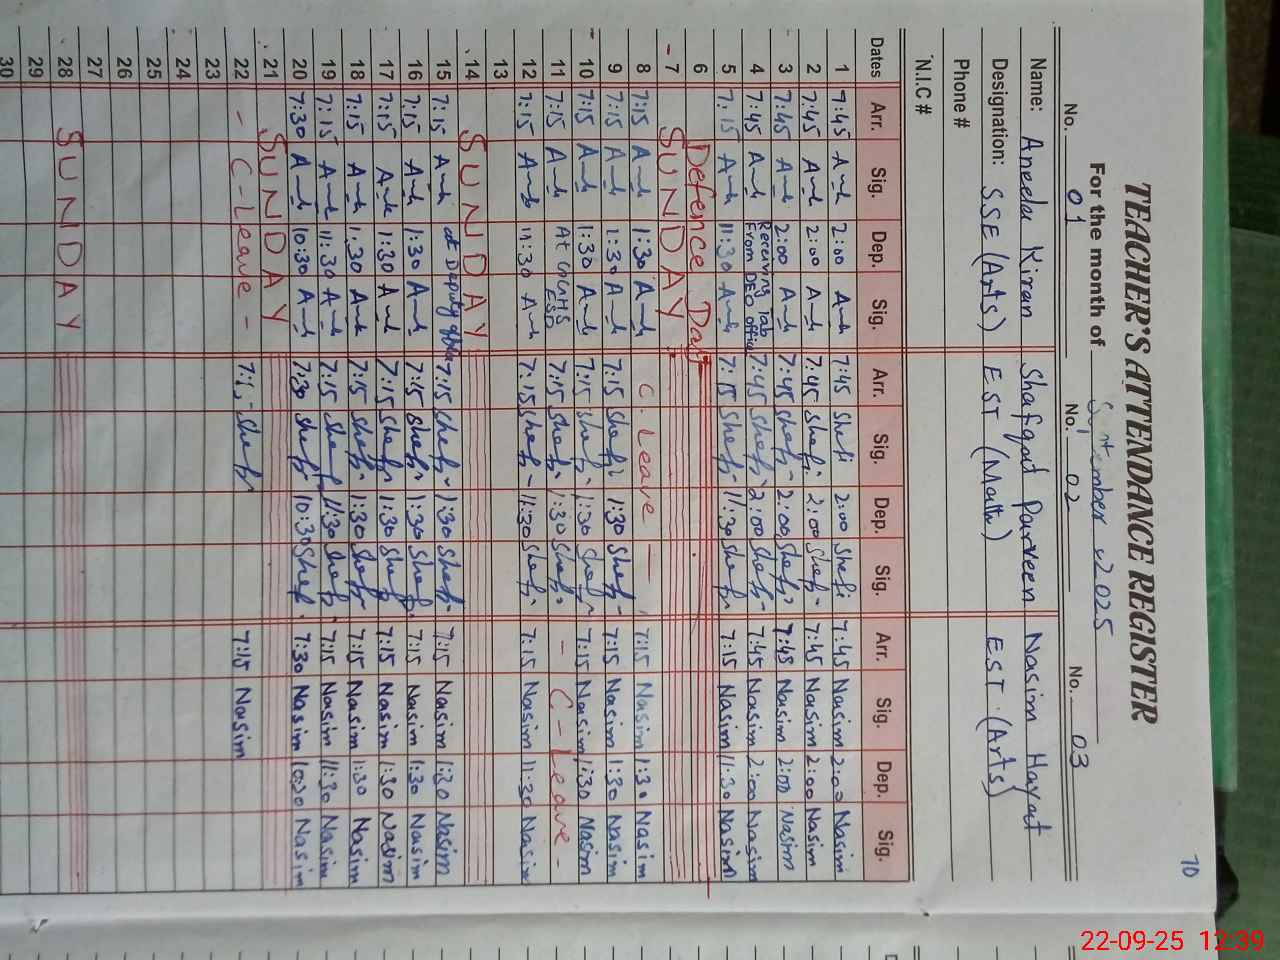 70
TEACHER'S ATTENDANCE REGISTER
For the month of September 2025
No. 01 No. 02 No. 03
Name: Aneela Kiran Shafqat Parveen Nasim Hayat
Designation: SSE (Arts) EST (Math) EST (Arts)
Phone #
N.I.C #
Dates Arr. Sig. Dep. Sig. Arr. Sig. Dep. Sig. Arr. Sig. Dep. Sig.
1 7:45 2:00 7:45 Shafi 2:00 Shafi 7:45 Nasim 2:00 Nasim
2 7:45 2:00 7:45 Shafi 2:00 Shafi 7:45 Nasim 2:00 Nasim
3 7:45 2:00 7:45 Shafi 2:00 Shafi 7:45 Nasim 2:00 Nasim
4 7:45 Receiving Tab From DEO office 7:45 Shafi 2:00 Shafi 7:45 Nasim 2:00 Nasim
5 7:15 11:30 7:15 Shafi 11:30 Shafi 7:15 Nasim 11:30 Nasim
6 Defence Day
7 SUNDAY
8 7:15 1:30 C. Leave 7:15 Nasim 1:30 Nasim
9 7:15 1:30 7:15 Shafi 1:30 Shafi 7:15 Nasim 1:30 Nasim
10 7:15 1:30 7:15 Shafi 1:30 Shafi 7:15 Nasim 1:30 Nasim
11 7:15 At 7:15 Shafi 1:30 Shafi - C-Leave -
12 7:15 11:30 7:15 Shafi 11:30 Shafi 7:15 Nasim 11:30 Nasim
13
14 SUNDAY
15 7:15 at Deputy office 7:15 Shafi 1:30 Shafi 7:15 Nasim 1:30 Nasim
16 7:15 1:30 7:15 Shafi 1:30 Shafi 7:15 Nasim 1:30 Nasim
17 7:15 1:30 7:15 Shafi 1:30 Shafi 7:15 Nasim 1:30 Nasim
18 7:15 1:30 7:15 Shafi 1:30 Shafi 7:15 Nasim 1:30 Nasim
19 7:15 11:30 7:15 Shafi 11:30 Shafi 7:15 Nasim 11:30 Nasim
20 7:30 10:30 7:30 Shafi 10:30 Shafi 7:30 Nasim 10:30 Nasim
21 SUNDAY
22 - C-Leave - Shafi 7:15 Nasim
23
24
25
26
27
28 SUNDAY
29
30
22-09-25 12:39